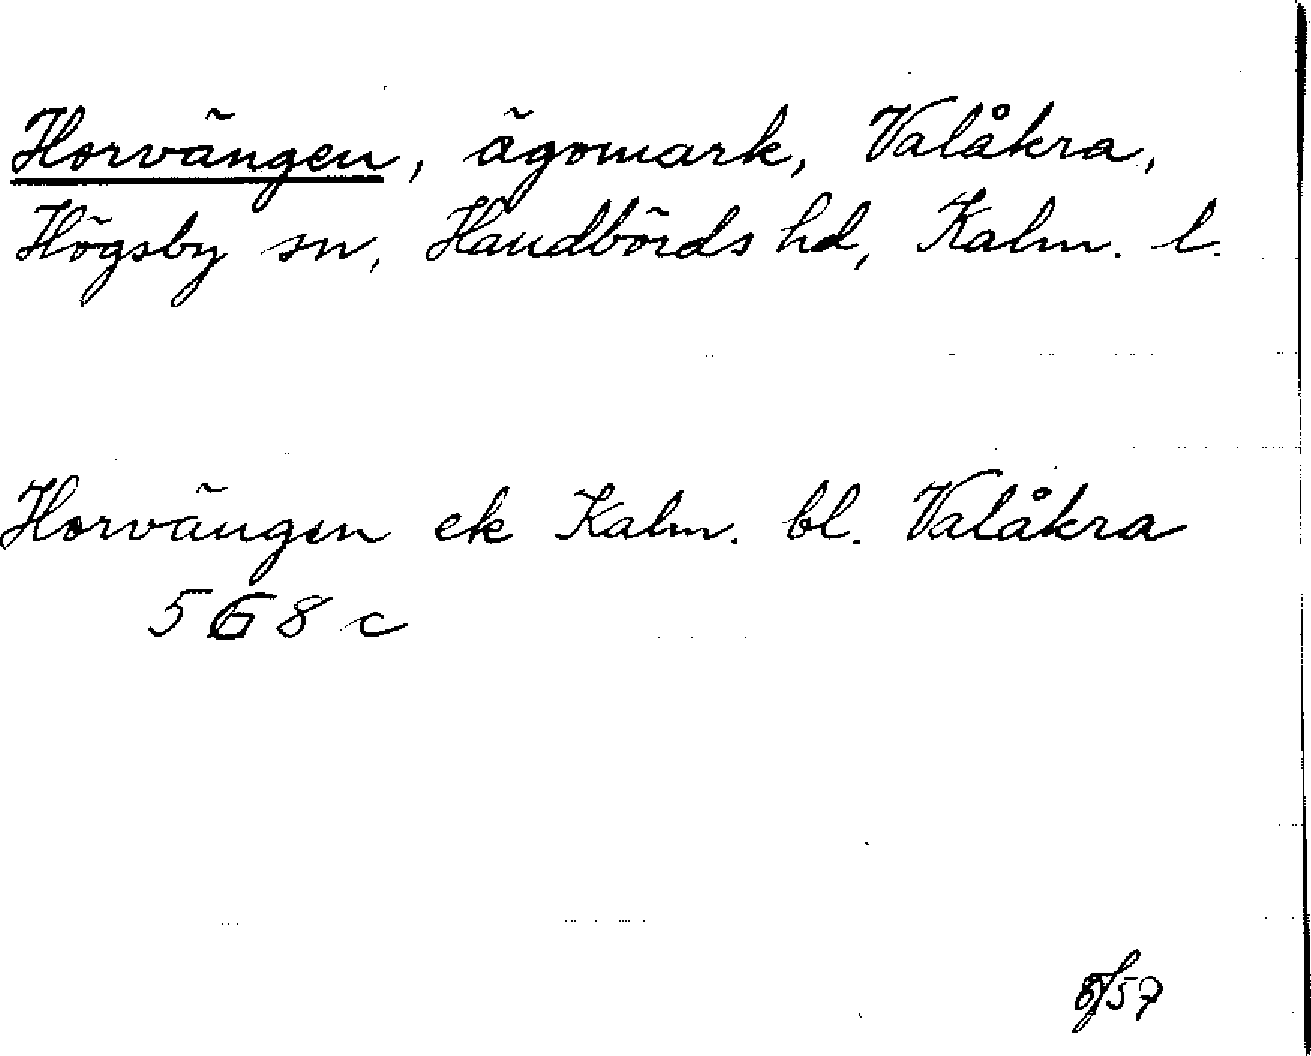 Horvängen, ägomark, Valåkra,
Högsby sn, Handbörds hd, Kalm. l.
Horvängen ek Kalm. bl. Valåkra
568 c